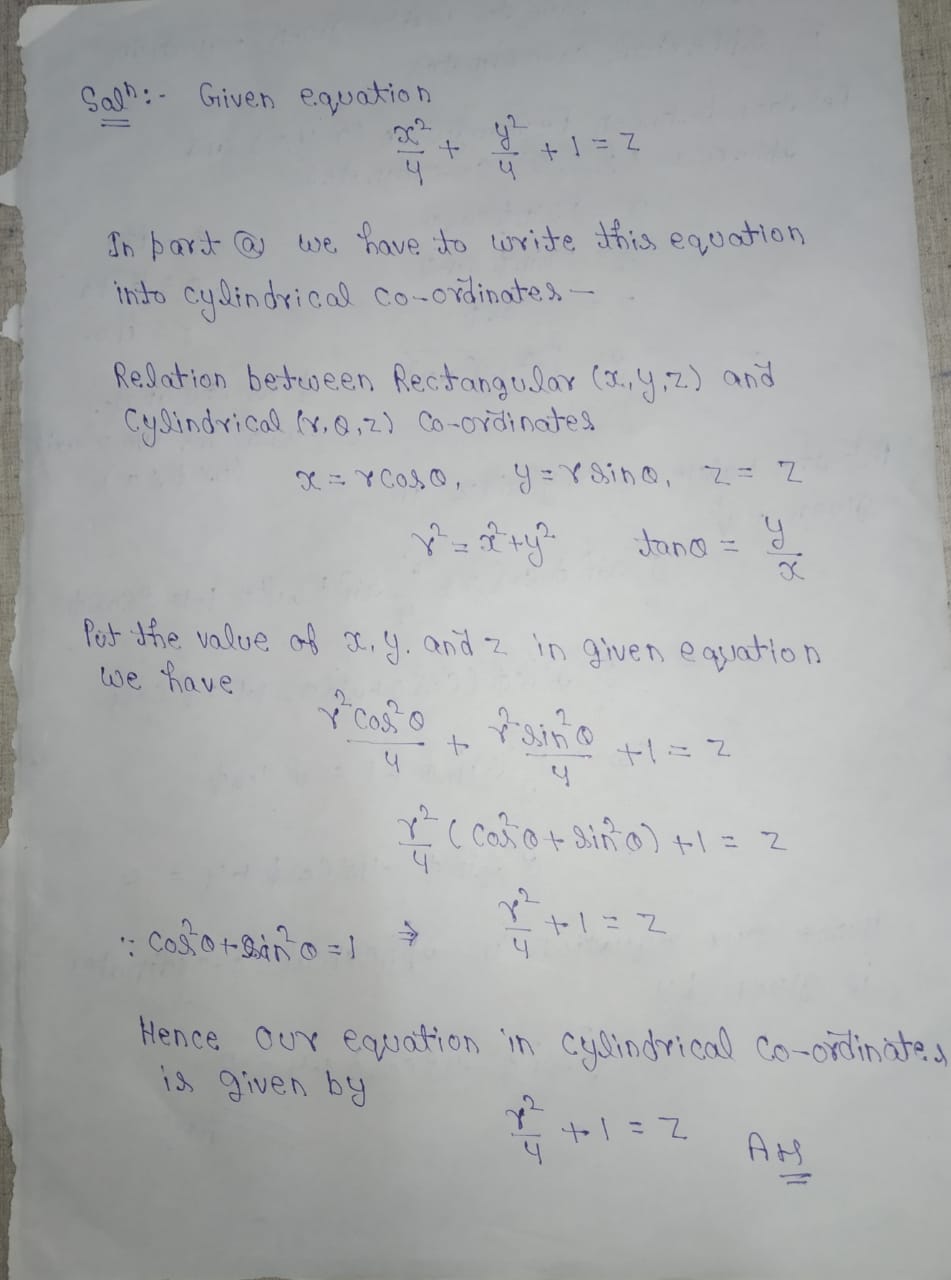 Solⁿ:- Given equation
x²/4 + y²/4 + 1 = z
In part ⓐ we have to write this equation
into cylindrical co-ordinates –
Relation between Rectangular (x,y,z) and
Cylindrical (r,θ,z) Co-ordinates
x = r cosθ, y = r sinθ, z = z
r² = x²+y² tanθ = y/x
Put the value of x, y. and z in given equation
we have
r²cos²θ/4 + r²sin²θ/4 + 1 = z
r²/4 (cos²θ + sin²θ) + 1 = z
∵ cos²θ + sin²θ = 1 ⇒ r²/4 + 1 = z
Hence our equation in cylindrical co-ordinates
is given by
r²/4 + 1 = z Ans